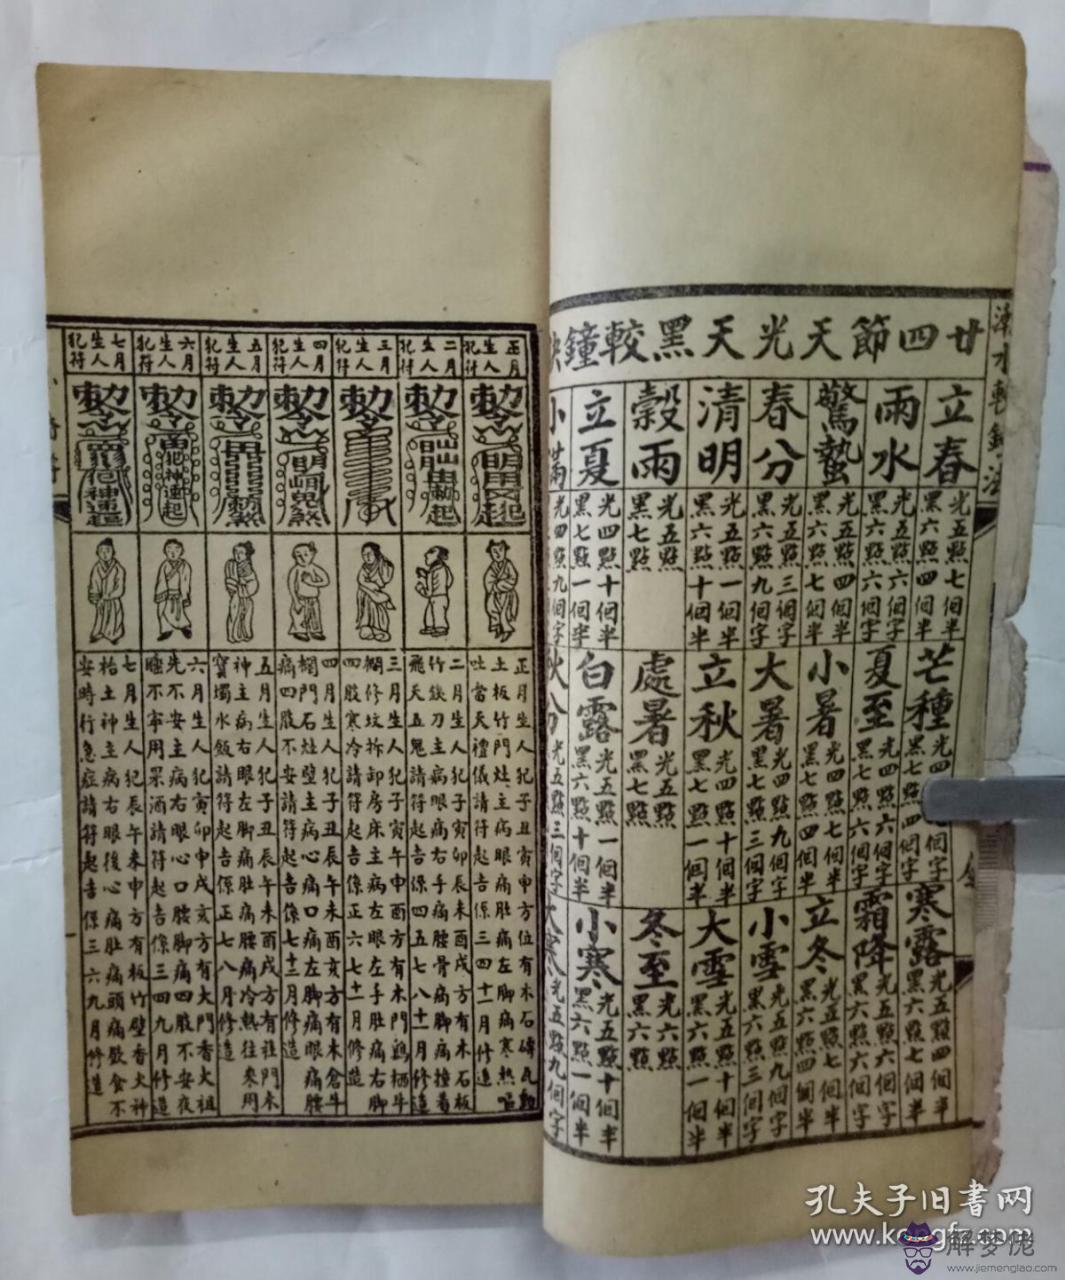 廿四節天光天黑較鐘
立春
光五點七個半
黑六點四個半
雨水
光五點六個字
黑六點六個字
驚蟄
光五點四個半
黑六點七個半
春分
光五點三個字
黑六點九個字
清明
光五點一個半
黑六點十個半
穀雨
光五點
黑七點
立夏
光四點十個半
黑七點一個半
小滿
光四點九個字
芒種
光四
黑七點四個字
夏至
光四點六個字
黑七點六個字
小暑
光四點七個半
黑七點四個半
大暑
光四點九個字
黑七點三個字
立秋
光四點十個半
黑七點一個半
處暑
光五點
黑七點
白露
光五點一個半
黑六點十個半
秋分
光五點三個字
寒露
光五點四個半
黑六點七個半
霜降
光五點六個字
黑六點六個字
立冬
光五點七個半
黑六點四個半
小雪
光五點九個字
黑六點三個字
大雪
光五點十個半
黑六點一個半
冬至
光六點
黑六點
小寒
光五點十個半
黑六點一個半
大寒
光五點九個字
正月生人犯符
二月生人犯符
三月生人犯符
四月生人犯符
五月生人犯符
六月生人犯符
七月生人犯符
正月生人犯子丑寅申方位有木石磚瓦動
土板竹門灶主病眼痛肚痛左脚寒熱嘔
吐當天禮儀請符起吉保三四十一月修造
二月生人犯子寅卯辰未酉戌方有木石板
竹鉄刀主病眼痛右手腰骨痛脚撞着
飛天五鬼請符起吉保四五七八十一月修造
三月生人犯子寅午申酉方有木門鷄栖牛
欄修坟拆卸房床主病左眼左手肚痛右脚
四肢寒冷請符起吉保正六七十一月修造
四月生人犯子丑未酉亥方有木倉牛
欄門石灶壁主病心痛口痛左脚痛眼痛腰
痛四肢不安請符起吉保七十二月修造
五月生人犯子丑辰午未酉戌方有祖門木
神主病右眼左脚痛肚痛脚痛冷熱往寒用
寶燭水飯請符起吉保正七八月修造
六月生人犯寅卯申戌亥方有大門香火祖
先不安主病右眼心口腰脚痛四肢不安夜
睡不寧用菓酒請符起吉保三四九月修造
七月生人犯辰午未申方有板竹壁香火神
枱土神主病右眼後心痛肚痛頭痛飲食不
安時行急症請符起吉保三六九月修造
孔夫子旧書网
www.kongfz.com
解梦佬
www.jiemenglao.com